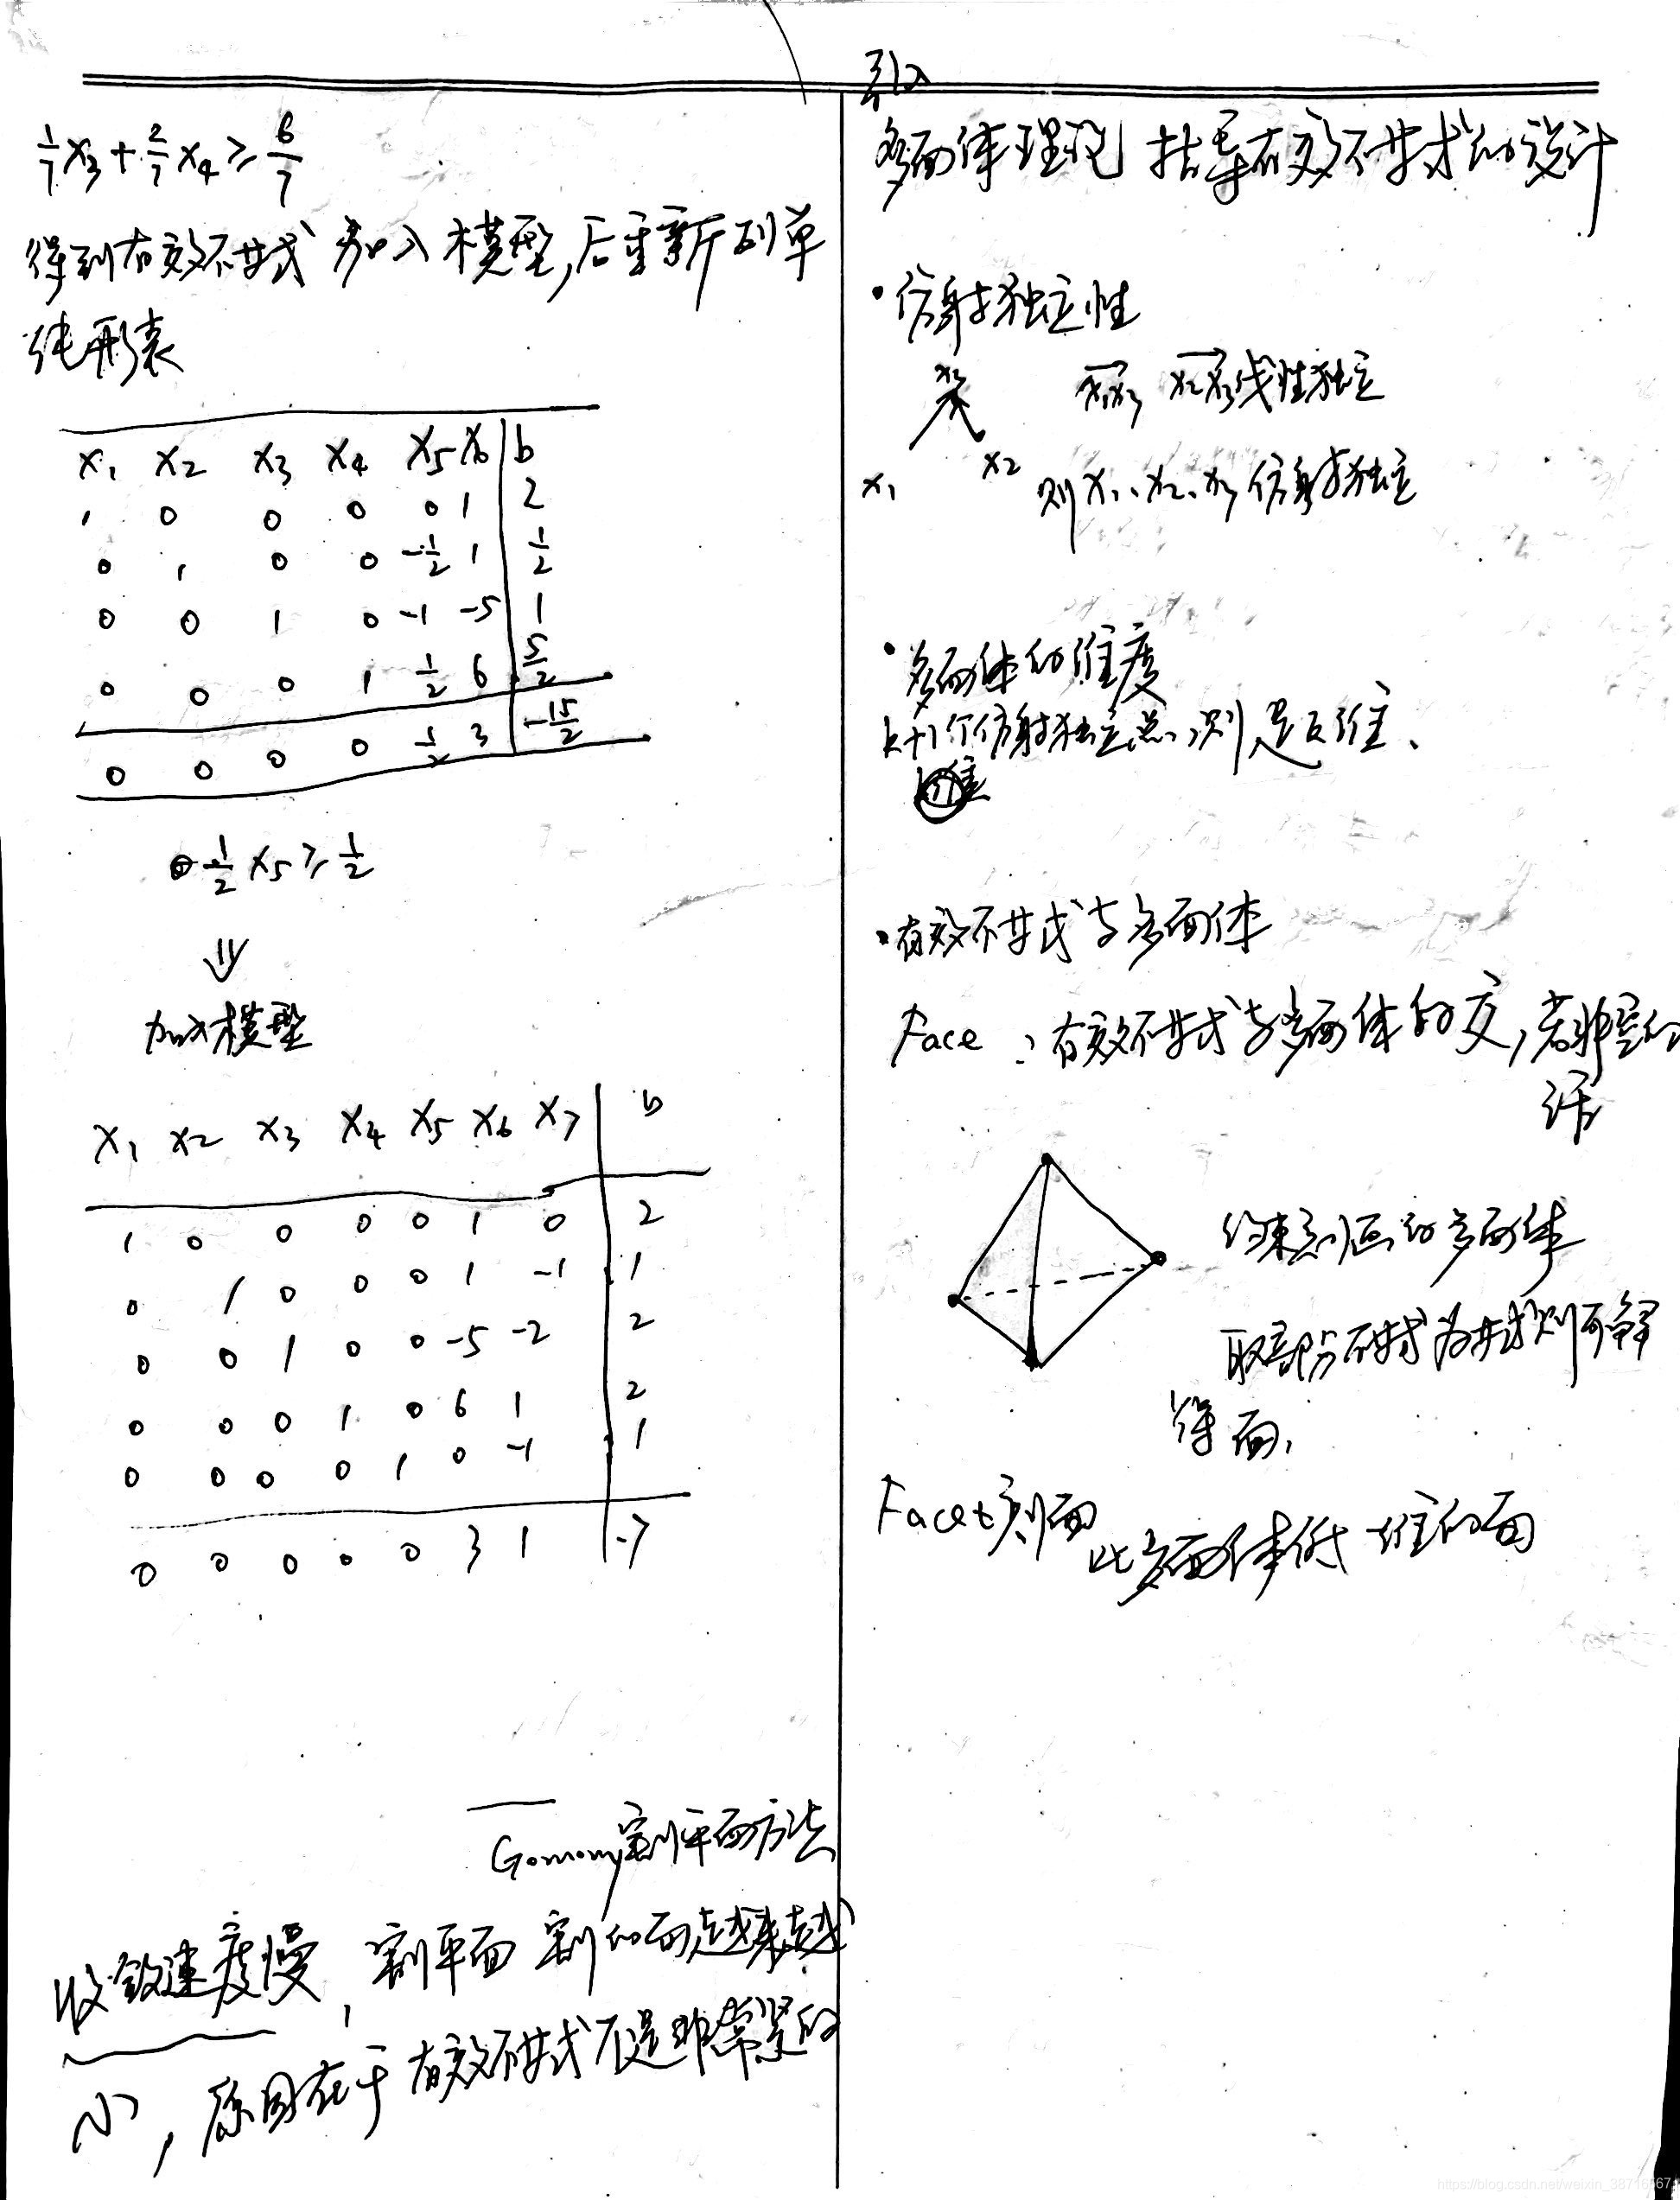 1/7 x₃ + 2/7 x₄ ≥ 6/7
得到有效不等式 加入模型,后重新列单
纯形表
x₁ x₂ x₃ x₄ x₅ x₆ b
1 0 0 0 0 1 2
0 1 0 0 -1/2 1 1/2
0 0 1 0 -1 -5 1
0 0 0 1 1/2 6 5/2
0 0 0 0 1/2 3 -15/2
1/2 x₅ ≥ 1/2
⇓
加入模型
x₁ x₂ x₃ x₄ x₅ x₆ x₇ b
1 0 0 0 0 1 0 2
0 1 0 0 0 1 -1 1
0 0 1 0 0 -5 -2 2
0 0 0 1 0 6 1 2
0 0 0 0 1 0 -1 1
0 0 0 0 0 3 1 -7
Gomory割平面方法
收敛速度慢,割平面 割的面越来越
小,原因在于有效不等式不是非常紧的
引入
多面体理论 指导有效不等式的设计
·仿射独立性
x₃
x₁x₃ x₂x₃线性独立
x₁ x₂
则x₁、x₂、x₃仿射独立
·多面体的维度
k+1个仿射独立点,则是k维、
·有效不等式与多面体
Face:有效不等式与多面体的交,若非空的
话
约束刻画的多面体
取部分不等式为等式则可解
得面,
Facet 刻面
比多面体低一维的面
https://blog.csdn.net/weixin_38716567